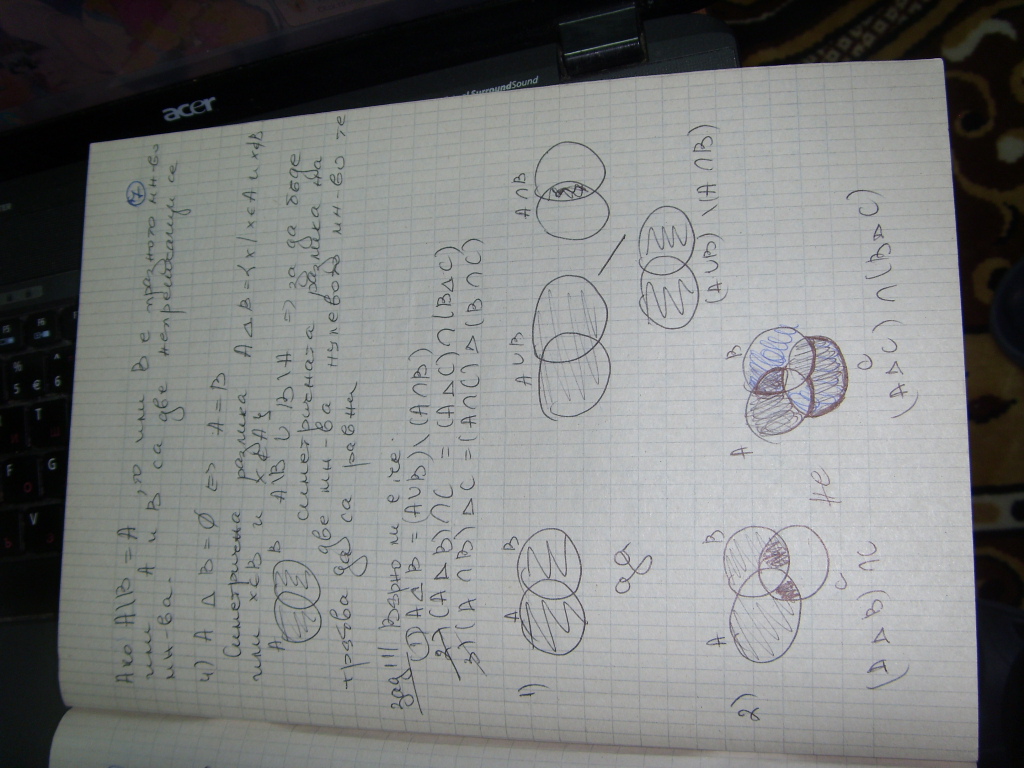 acer
SurroundSound
7
Ако A\B = A, то или B е празно мн-во
или мн-ва A и B са две непресичащи се
4) A Δ B = ∅ <=> A = B
Симетрична разлика A Δ B = {x / x ∈ A и x ∉ B
или x ∈ B и x ∉ A}
A B A\B ∪ B\A => за да бъде
симетричната разлика на
две мн-ва нулевото мн-во те
трябва да са равни
зад III Вярно ли е, че:
1) A Δ B = (A ∪ B) \ (A ∩ B)
2) (A Δ B) ∩ C = (A Δ C) ∩ (B Δ C)
3) (A ∩ B) Δ C = (A ∩ C) Δ (B ∩ C)
1) A B A ∪ B A ∩ B
да
(A ∪ B) \ (A ∩ B)
2) A B A B
C не C
(A Δ B) ∩ C (A Δ C) ∩ (B Δ C)